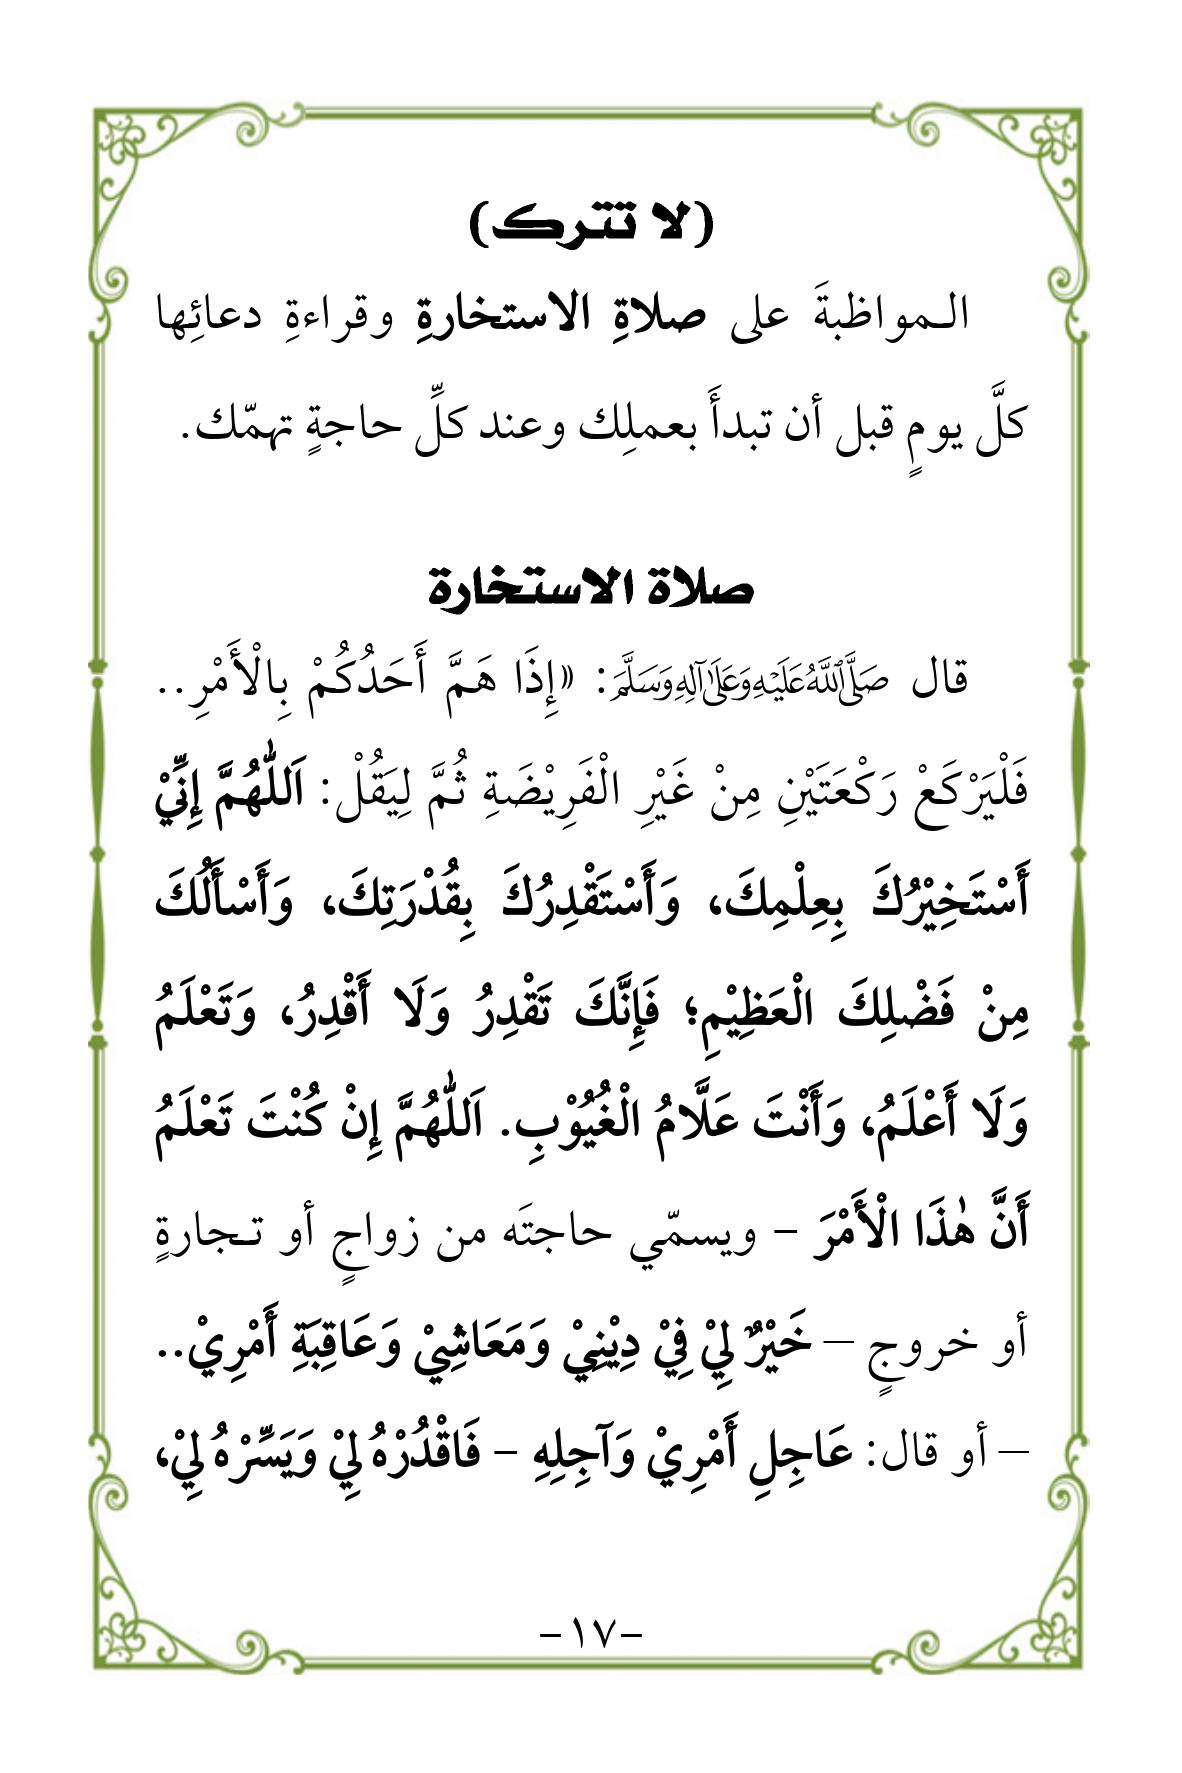 (لا تترك)
الـمواظبةَ على صلاةِ الاستخارةِ وقراءةِ دعائِها
كلَّ يومٍ قبل أن تبدأَ بعملِك وعند كلِّ حاجةٍ تهمّك.
صلاة الاستخارة
قال صَلَّى اللَّهُ عَلَيْهِ وَعَلَى آلِهِ وَسَلَّمَ: «إِذَا هَمَّ أَحَدُكُمْ بِالْأَمْرِ..
فَلْيَرْكَعْ رَكْعَتَيْنِ مِنْ غَيْرِ الْفَرِيْضَةِ ثُمَّ لِيَقُلْ: اَللّٰهُمَّ إِنِّيْ
أَسْتَخِيْرُكَ بِعِلْمِكَ، وَأَسْتَقْدِرُكَ بِقُدْرَتِكَ، وَأَسْأَلُكَ
مِنْ فَضْلِكَ الْعَظِيْمِ؛ فَإِنَّكَ تَقْدِرُ وَلَا أَقْدِرُ، وَتَعْلَمُ
وَلَا أَعْلَمُ، وَأَنْتَ عَلَّامُ الْغُيُوْبِ. اَللّٰهُمَّ إِنْ كُنْتَ تَعْلَمُ
أَنَّ هٰذَا الْأَمْرَ – ويسمّي حاجتَه من زواجٍ أو تـجارةٍ
أو خروجٍ – خَيْرٌ لِيْ فِيْ دِيْنِيْ وَمَعَاشِيْ وَعَاقِبَةِ أَمْرِيْ..
– أو قال: عَاجِلِ أَمْرِيْ وَآجِلِهِ – فَاقْدُرْهُ لِيْ وَيَسِّرْهُ لِيْ،
-١٧-